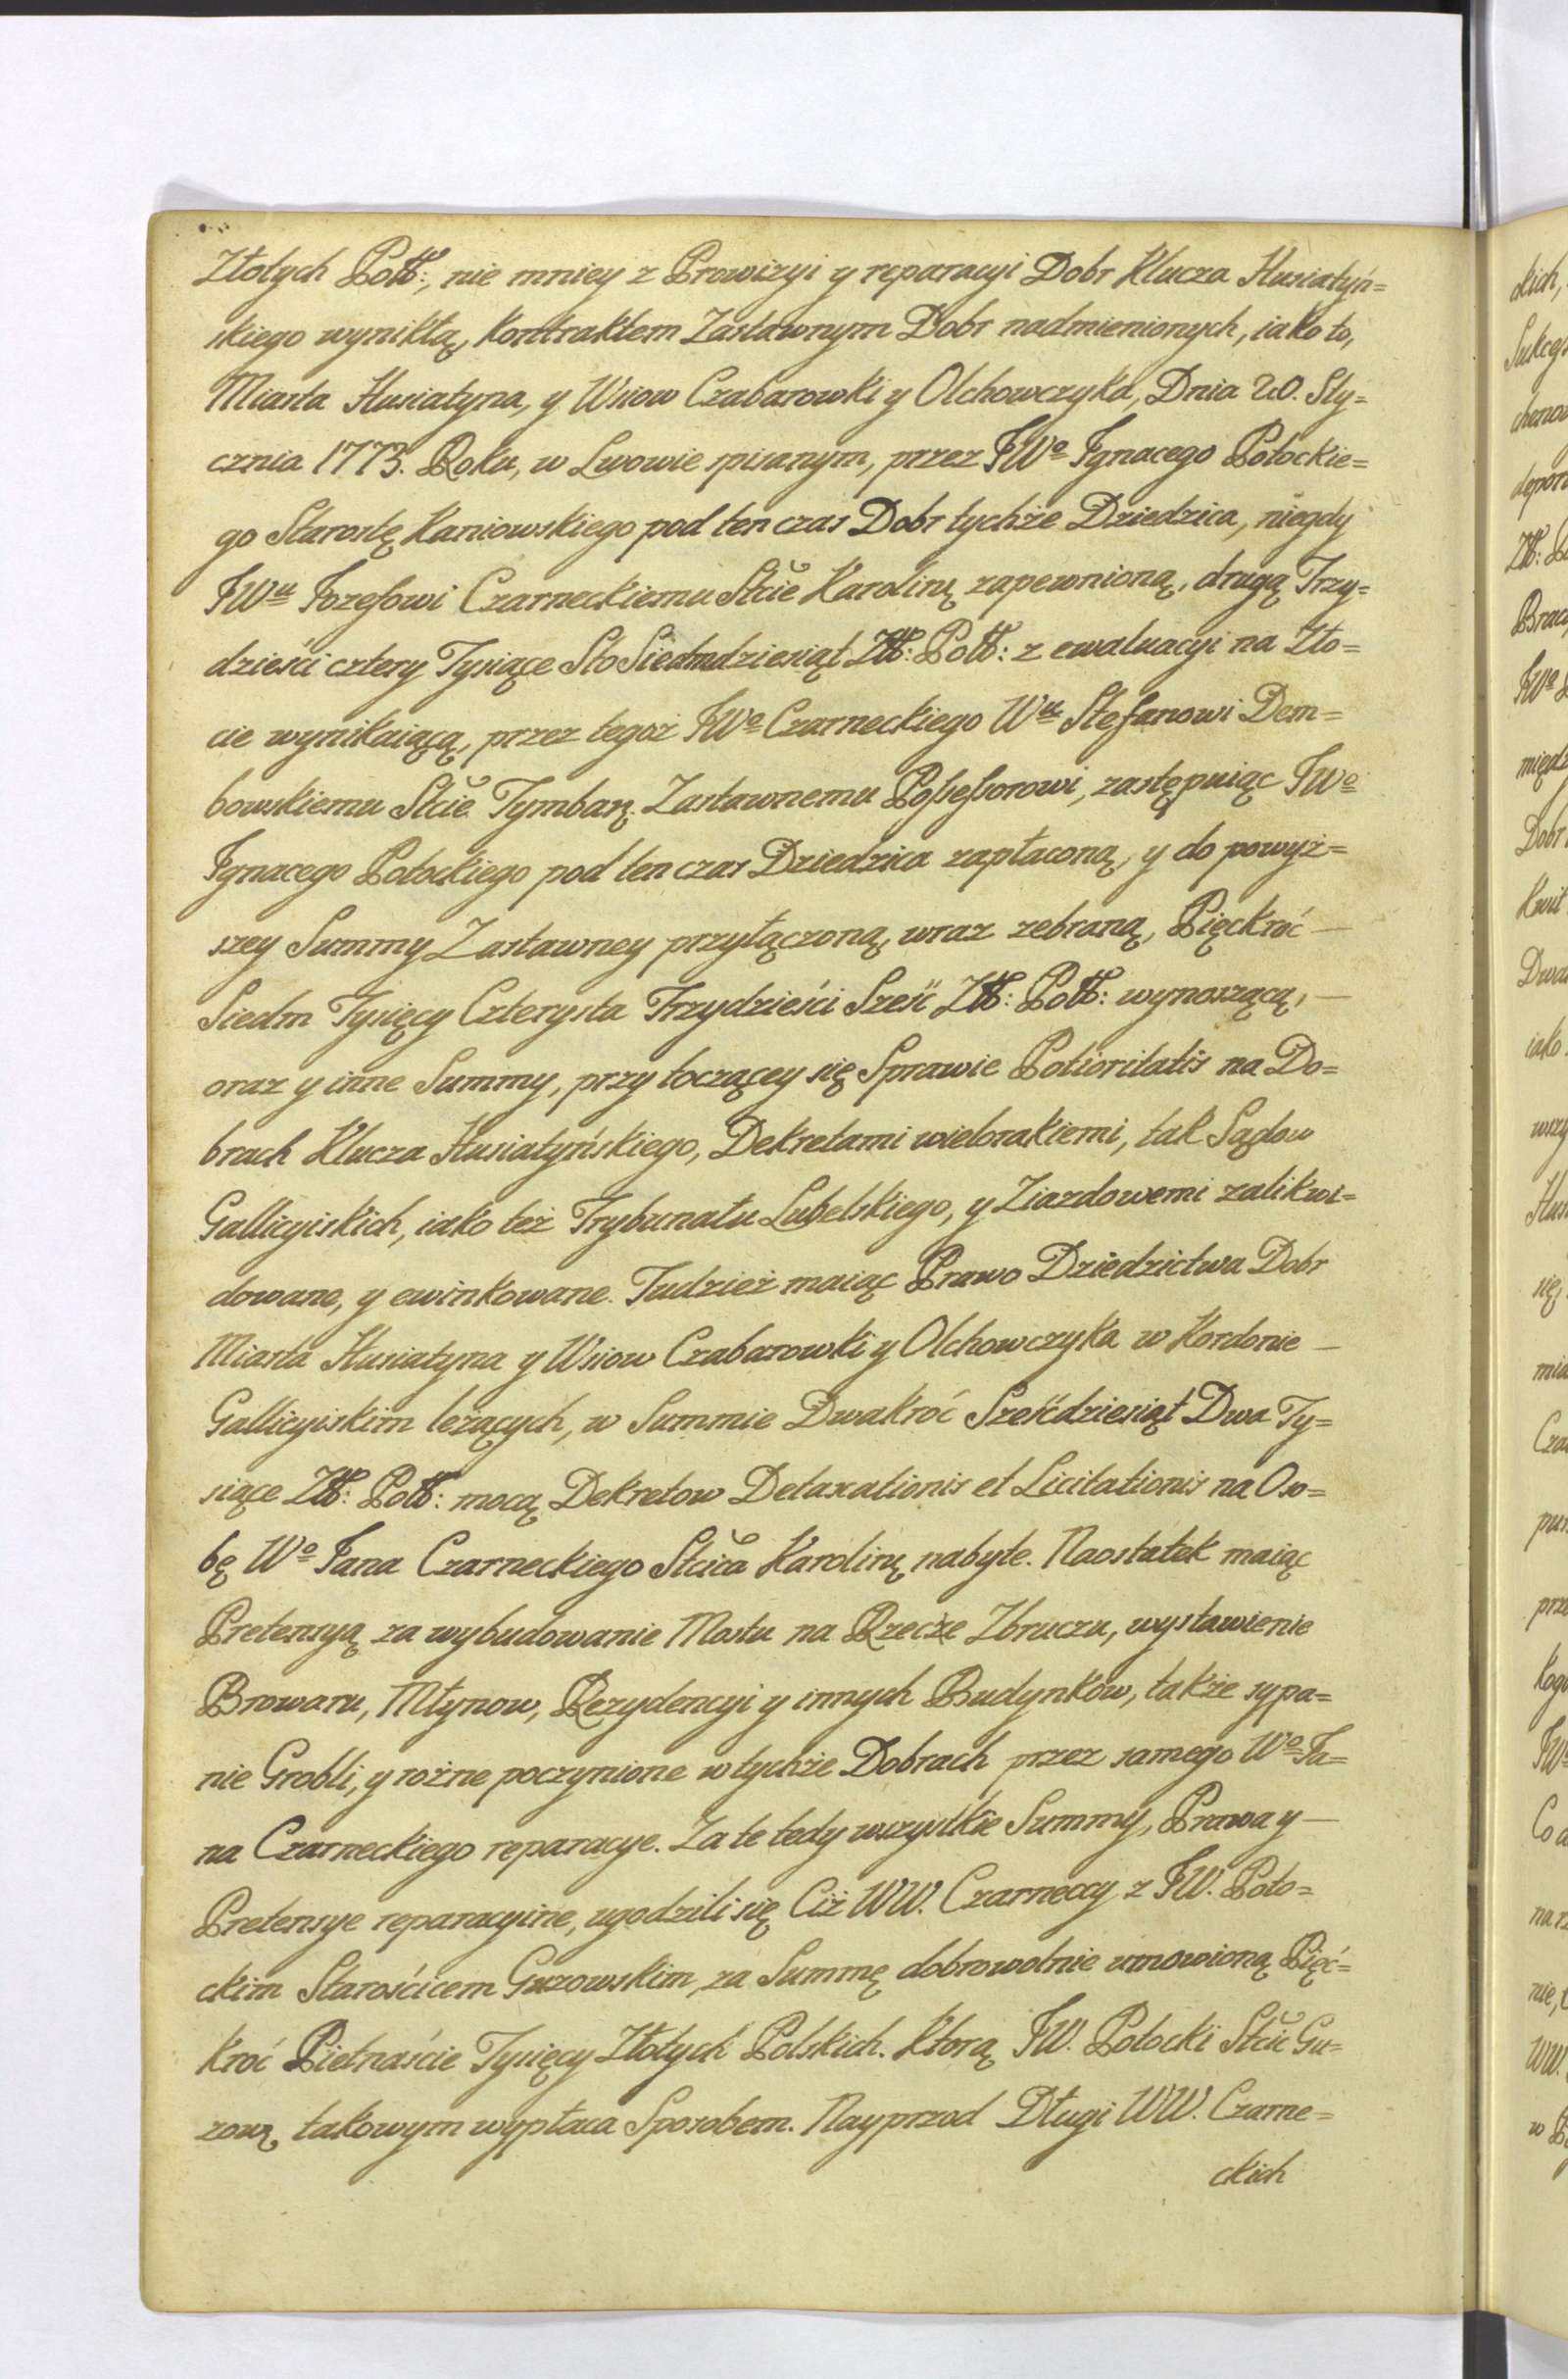 Złotych Poltt:, nie mniey z Prowizyi y reparacyi Dobr Klucza Husiatyń=
skiego wynikłą, Kontraktem Zastawnym Dobr nadmienionych, iako to,
Miasta Husiatyna, y Wsiow Czabarowki y Olchowczyka, Dnia 20. Sty=
cznia 1773. Roku, w Lwowie spisanym, przez JWº Ignacego Potockie=
go Starostę Kaniowskiego pod ten czas Dobr tychże Dziedzica, niegdy
JWᵘ Jozefowi Czarneckiemu Stcie Karolinę zapewnioną, drugą Trzy=
dzieści cztery Tysiące Sto Siedmdziesiąt Ztt: Poltt: z ewaluacyi na Zło=
cie wynikaiącą, przez tegoż JWº Czarneckiego Wᵘ Stefanowi Dem=
bowskiemu Stcie Tymbarę. Zastawnemu Possessorowi, zastępuiąc JWº
Ignacego Potockiego pod ten czas Dziedzica zapłaconą, y do powyż=
szey Summy Zastawney przyłączoną, wraz zebraną, Pięckroć —
Siedm Tysięcy Czterysta Trzydzieści Sześć Ztt: Poltt: wynoszącą, —
oraz y inne Summy, przy toczącey się Sprawie Potioritatis na Do=
brach Klucza Husiatyńskiego, Dekretami wielorakiemi, tak Sądow
Gallicyiskich, iako też Trybunału Lubelskiego, y Ziazdowemi zalikwi=
dowane, y ewinkowane. Tudzież maiąc Prawo Dziedzictwa Dobr
Miasta Husiatyna y Wsiow Czabarowki y Olchowczyka w Kordonie —
Gallicyiskim leżących, w Summie Dwakroć Sześćdziesiąt Dwa Ty=
siące Ztt: Poltt: mocą Dekretow Detaxationis et Licitationis na Oso=
bę Wº Jana Czarneckiego Stcica Karolinę nabyte. Naostatek maiąc
Pretensyą za wybudowanie Mostu na Rzecze Zbruczu, wystawienie
Browaru, Młynow, Rezydencyi y innych Budynków, także sypa=
nie Grobli, y rożne poczynione w tychże Dobrach przez samego Wº Ja=
na Czarneckiego reparacye. Za te tedy wszystkie Summy, Prawa y —
Pretensye reparacyine, ugodzili się Ciż WW. Czarneccy z JW. Poto=
ckim Starościcem Guzowskim, za Summę dobrowolnie umowioną Pięć=
kroć Pietnaście Tysięcy Złotych Polskich. Którą JW. Potocki Stcic Gu=
zowę takowym wypłaca Sposobem. Nayprzod Długi WW. Czarne=
ckich